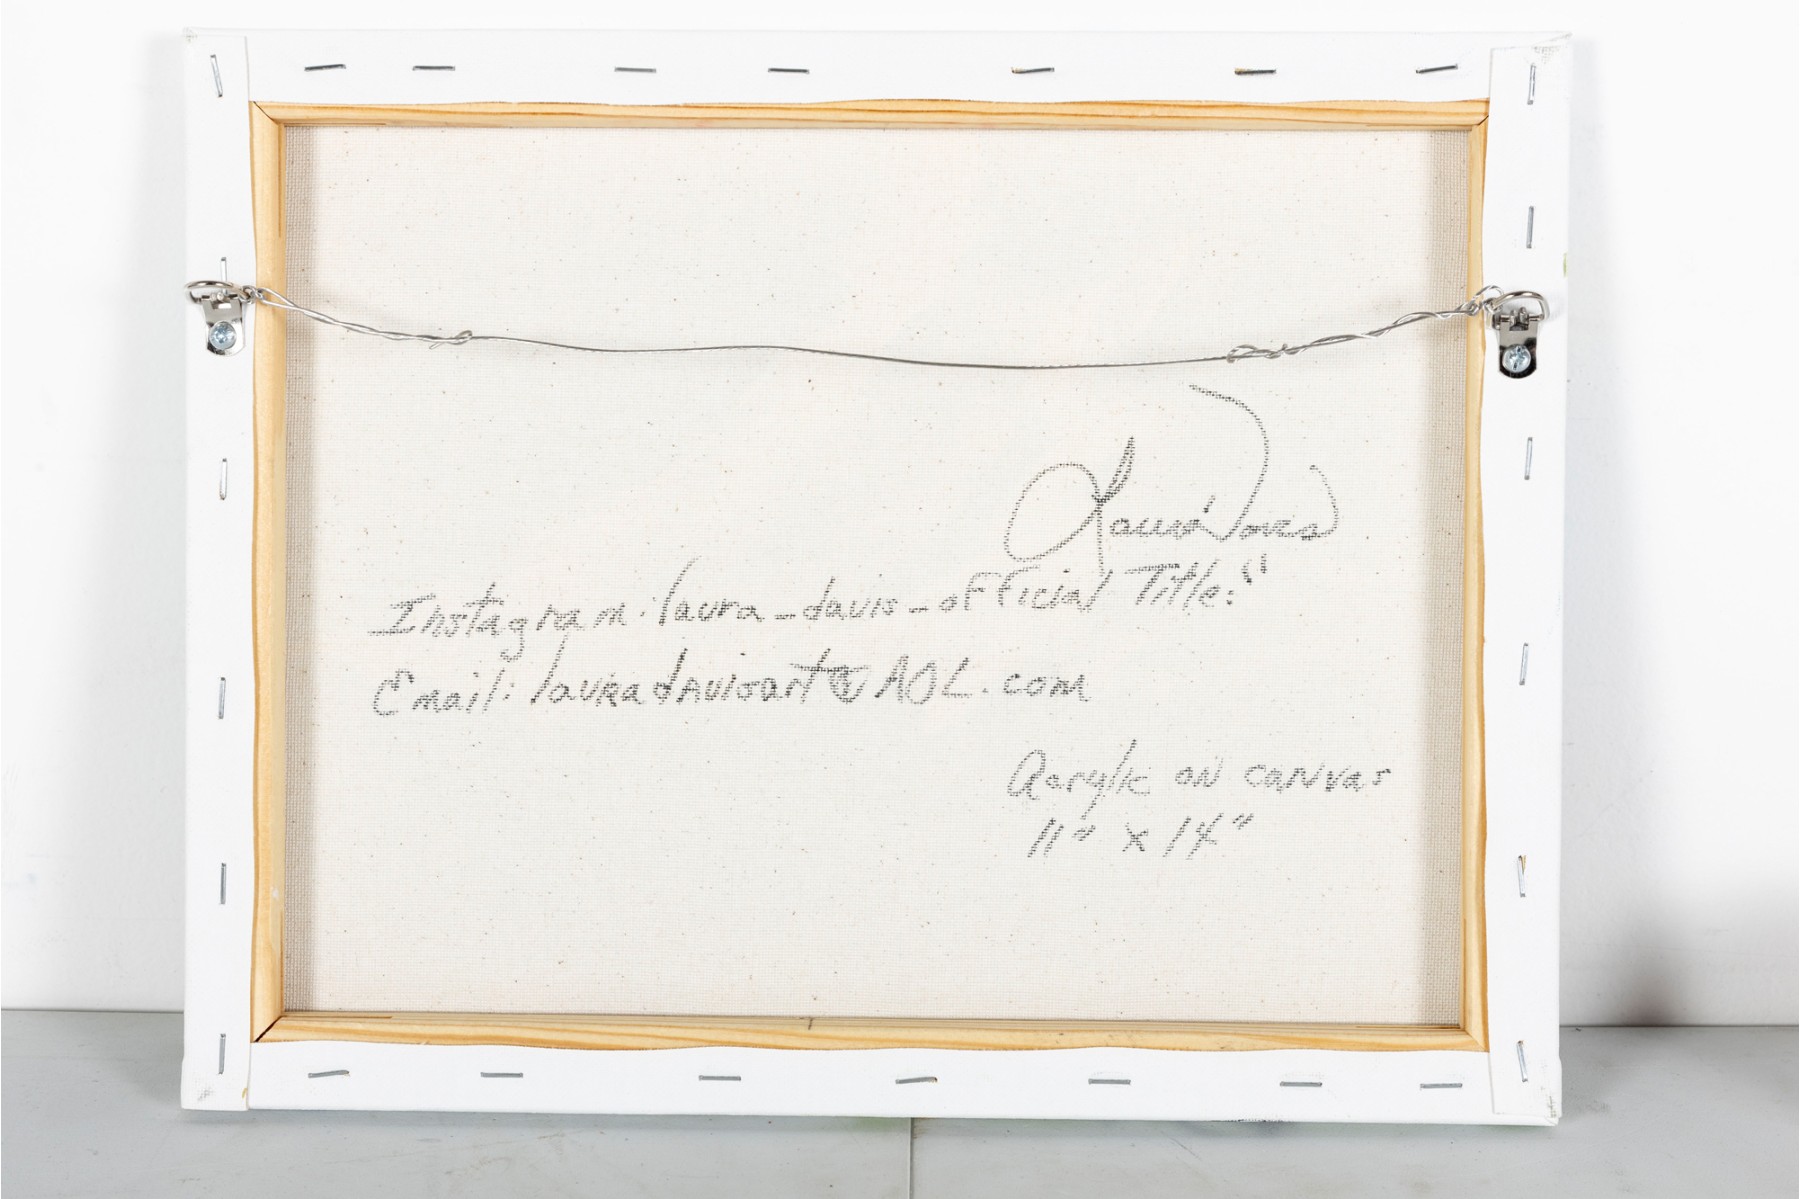 Laura Davis
Instagram: laura_davis_official Title: "
Email: lauradavisart@AOL.com
Acrylic on canvas
11" x 14"